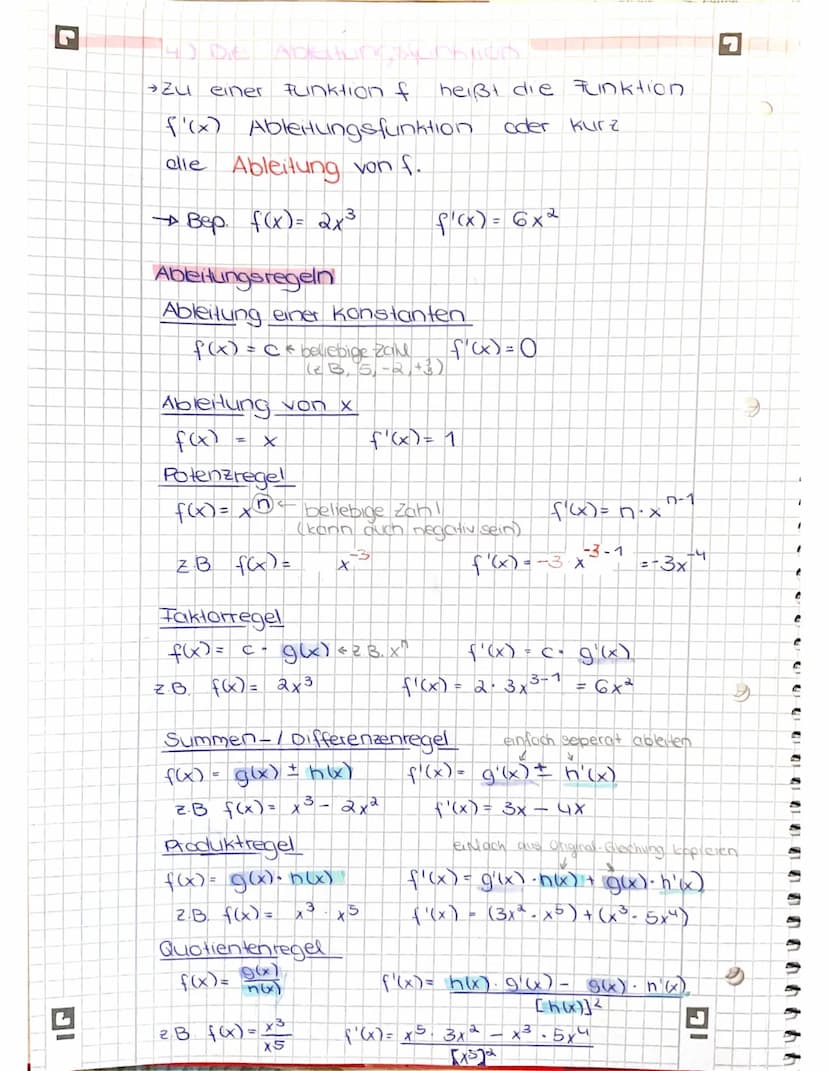 4) Die Ableitungsfunktion
→ Zu einer Funktion f heißt die Funktion
f'(x) Ableitungsfunktion oder kurz
die Ableitung von f.
→ Bsp. f(x) = 2x³ f'(x) = 6x²
Ableitungsregeln
Ableitung einer Konstanten
f(x) = c ← beliebige Zahl f'(x) = 0
(z.B. 5, -2, +⅓)
Ableitung von x
f(x) = x f'(x) = 1
Potenzregel
f(x) = xⁿ ← beliebige Zahl f'(x) = n · xⁿ⁻¹
(kann auch negativ sein)
z.B f(x) = x⁻³ f'(x) = -3 x⁻³⁻¹ = -3x⁻⁴
Faktorregel
f(x) = c · g(x) ← z.B. xⁿ f'(x) = c · g'(x)
z.B. f(x) = 2x³ f'(x) = 2 · 3x³⁻¹ = 6x²
Summen-/Differenzenregel einfach seperat ableiten
f(x) = g(x) ± h(x) f'(x) = g'(x) ± h'(x)
z.B f(x) = x³ - 2x² f'(x) = 3x - 4x
Produktregel einfach aus Original-Gleichung kopieren
f(x) = g(x) · h(x) f'(x) = g'(x) · h(x) + g(x) · h'(x)
z.B. f(x) = x³ · x⁵ f'(x) = (3x² · x⁵) + (x³ · 5x⁴)
Quotientenregel
f(x) = g(x)/h(x) f'(x) = h(x) · g'(x) - g(x) · h'(x) / [h(x)]²
z.B f(x) = x³/x⁵ f'(x) = x⁵ · 3x² - x³ · 5x⁴ / [x⁵]²